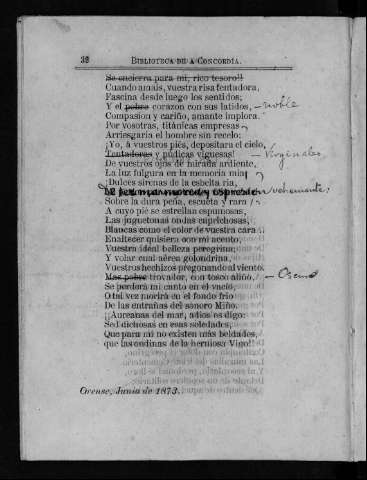 32 BIBLIOTECA DE A CONCORDIA.
Se encierra para mi, rico tesoro!!
Cuando amais, vuestra risa tentadora,
Fascina desde luego los sentidos;
Y el pobre corazon con sus latidos, – noble
Compasion y cariño, amante implora.
Por vosotras, titánicas empresas
Arriesgaria el hombre sin recelo:
¡Yo, á vuestros piés, depositara el cielo,
Tentadoras y púdicas viguesas! – Virginales
De vuestros ojos de mirada ardiente,
La luz fulgura en la memoria mia
¡Dulces sirenas de la esbelta ria,
vehemente:
Sobre la dura peña, escueta y rara
A cuyo pié se estrellan espumosas,
Las juguetonas ondas caprichosas,
Blancas como el color de vuestra cara
Enaltecer quisiera con mi acento,
Vuestra ideal belleza peregrina;
Y volar cual aérea golondrina,
Vuestros hechizos pregonando al viento.
Mas pobre trovador, con tosco aliño, – Oscuro
Se perderá mi canto en el vacío,
O tal vez morirá en el fondo frio
De las entrañas del sonoro Miño.
¡Aureanas del mar, adios os digo:
Sed dichosas en esas soledades,
Que para mí no existen mas beldades,
que las ondinas de la hermosa Vigo!!
Orense, Junio de 1873.